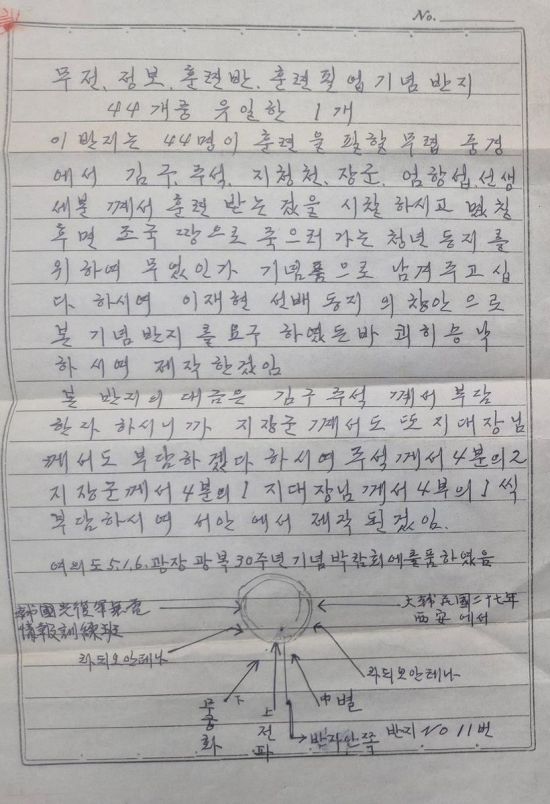 No.
무전, 정보, 훈련반, 훈련필업기념반지
44개중 유일한 1개
이 반지는 44명이 훈련을 필할 무렵 풍경
에서 김구, 주석, 지청천, 장군, 엄항섭, 선생
세분 께서 훈련 받는 것을 시찰 하시고 몇칠
후면 조국 땅으로 죽으러 가는 청년 동지를
위하여 무었인가 기념품으로 남겨주고 십
다 하시여 이재현 선배 동지 의 창안 으로
본 기념반지 를 요구 하였든바 쾌히 승낙
하시여 제작 한것임
본 반지의 대금은 김구 주석 께서 부담
한다 하시니까 지장군 께서도 또 지대장님
께서도 부담하겠다 하시여 주석께서 4분의2
지장군께서 4분의1 지대장님 게서 4부의1 씩
부담하시여 서안 에서 제작 된것임.
여의도 5.1.6. 광장 광복 30주년 기념 박람회에 출품하였음
韓國光復軍無電
情報訓練班
라듸오안테나
大韓民國二十七年
西安에서
라듸오안테나
下
무궁화
上
전파
中별
반지안쪽 반지 NO 11번